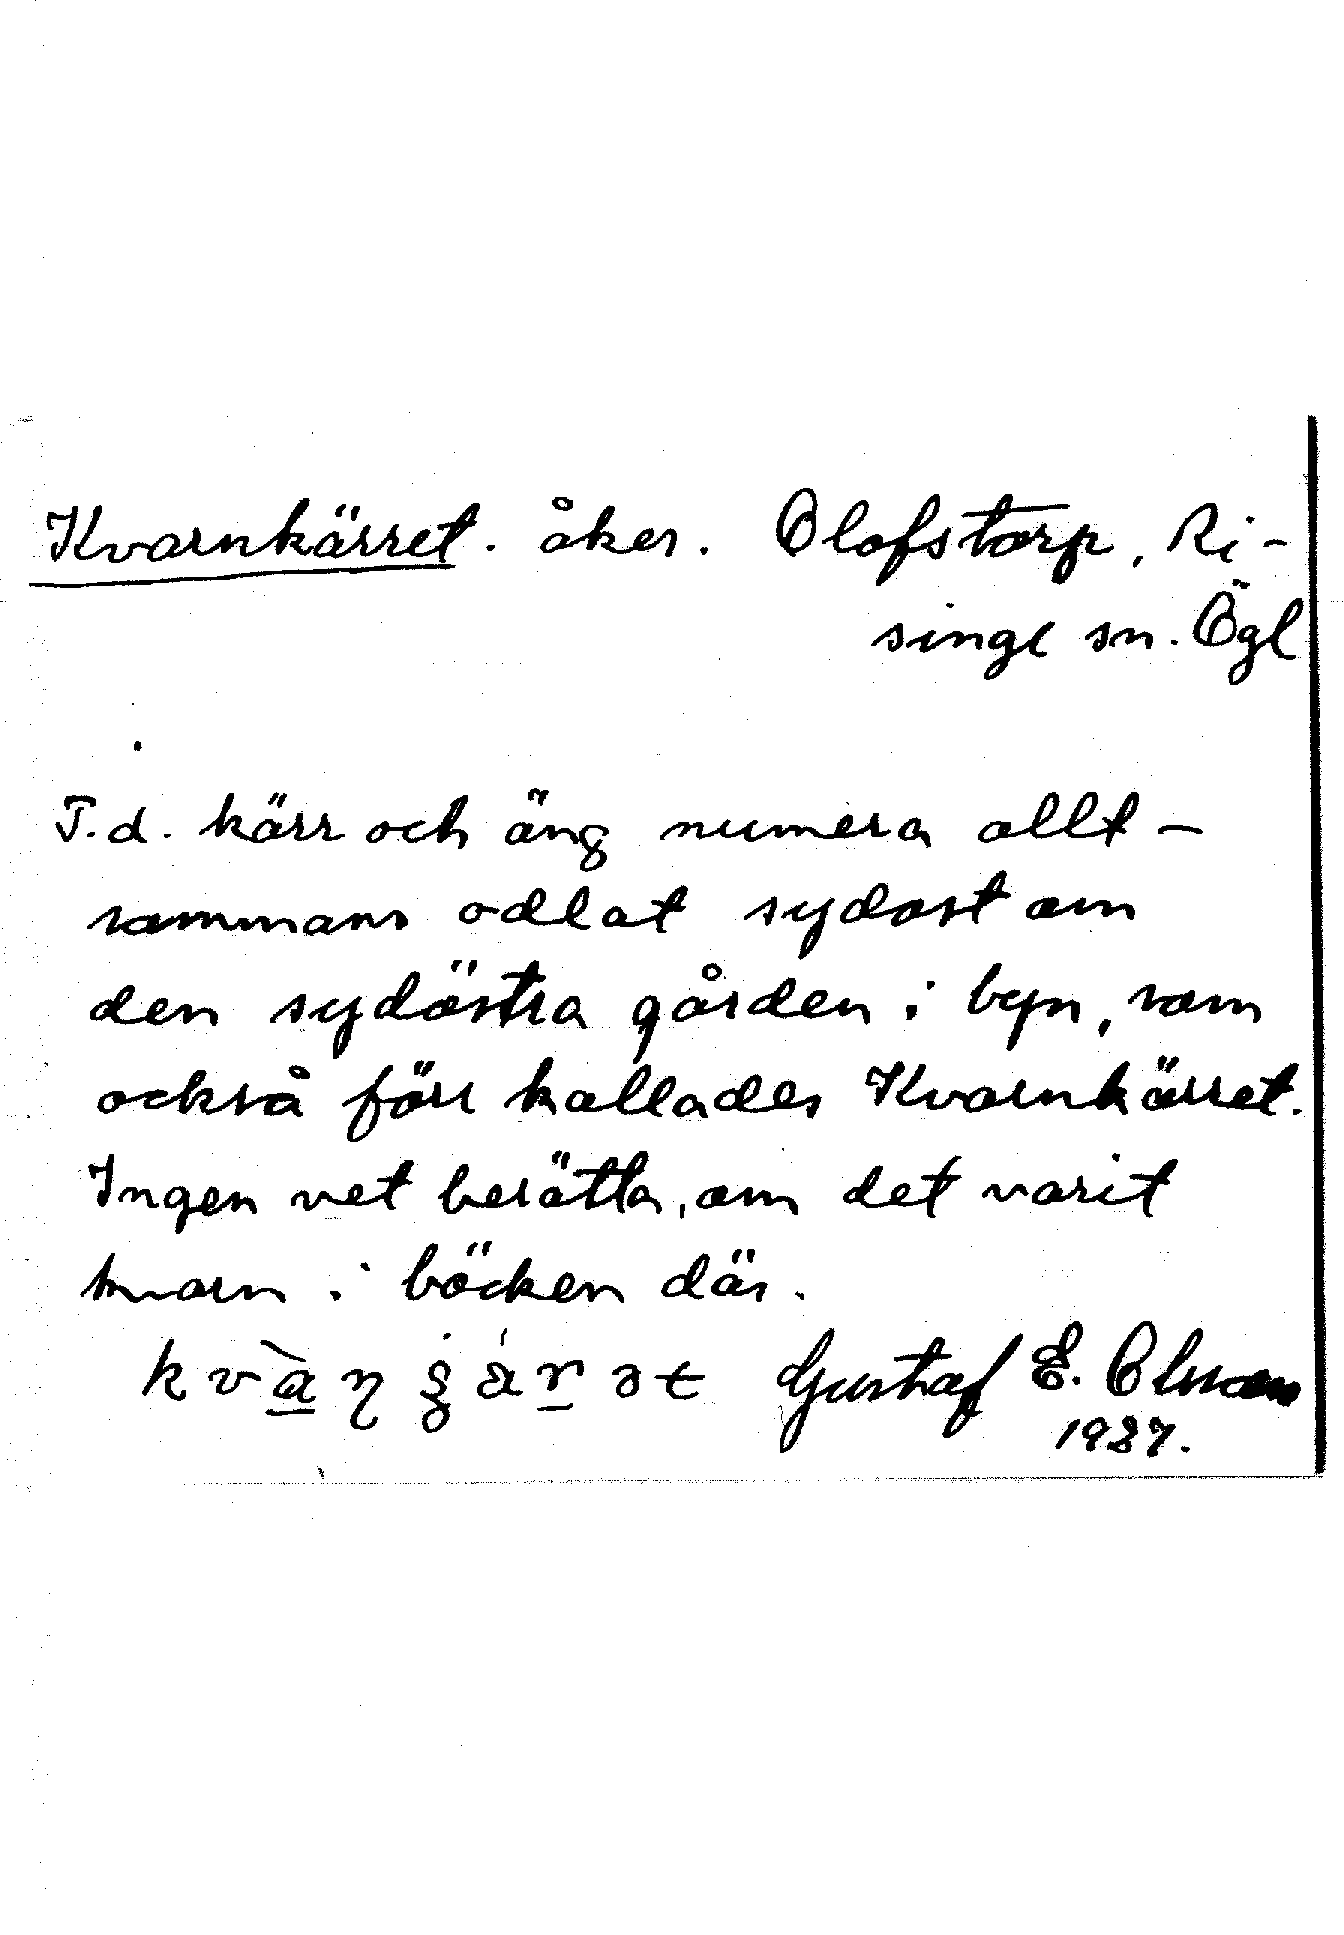 Kvarnkärret. åker. Olofstorp, Ri-
singe sn. Ögl
F.d. kärr och äng numera allt-
sammans odlat sydost om
den sydöstra gården i byn, som
också förr kallades Kvarnkärret.
Ingen vet berätta, om det varit
kvarn i bäcken där.
Gustaf E. Olsson
1937.